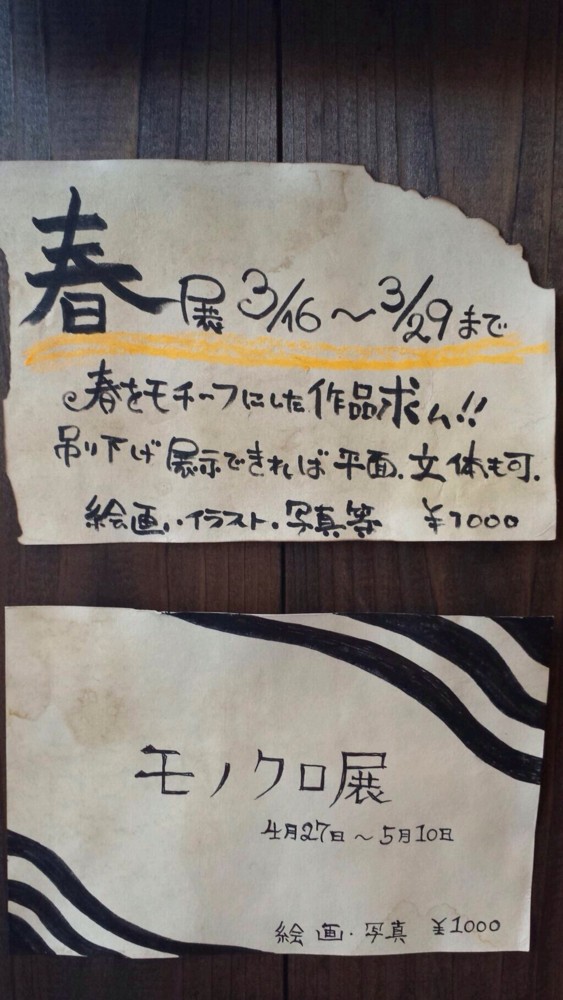 春展 3/16〜3/29まで
春をモチーフにした作品求ム!!
吊り下げ展示できれば平面、立体も可.
絵画・イラスト・写真等 ¥1000
モノクロ展
4月27日〜5月10日
絵画・写真 ¥1000